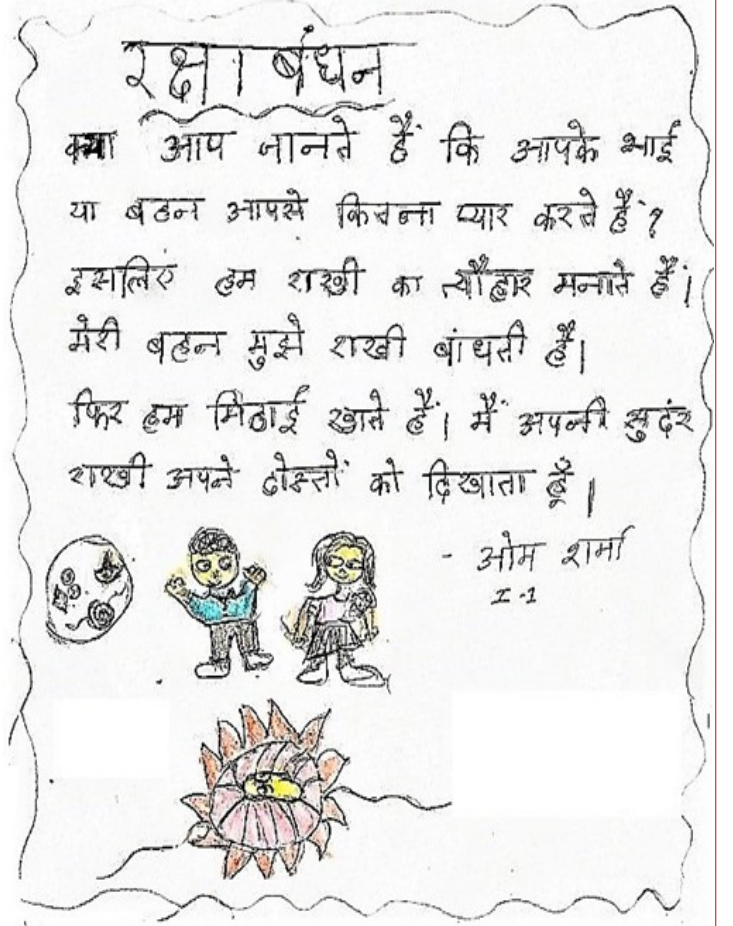 रक्षा बंधन
क्या आप जानते हैं कि आपके भाई
या बहन आपसे कितना प्यार करते हैं?
इसलिए हम राखी का त्यौहार मनाते हैं।
मेरी बहन मुझे राखी बांधती है।
फिर हम मिठाई खाते हैं। मैं अपनी सुदंर
राखी अपने दोस्तों को दिखाता हूँ।
- ओम शर्मा
I-1